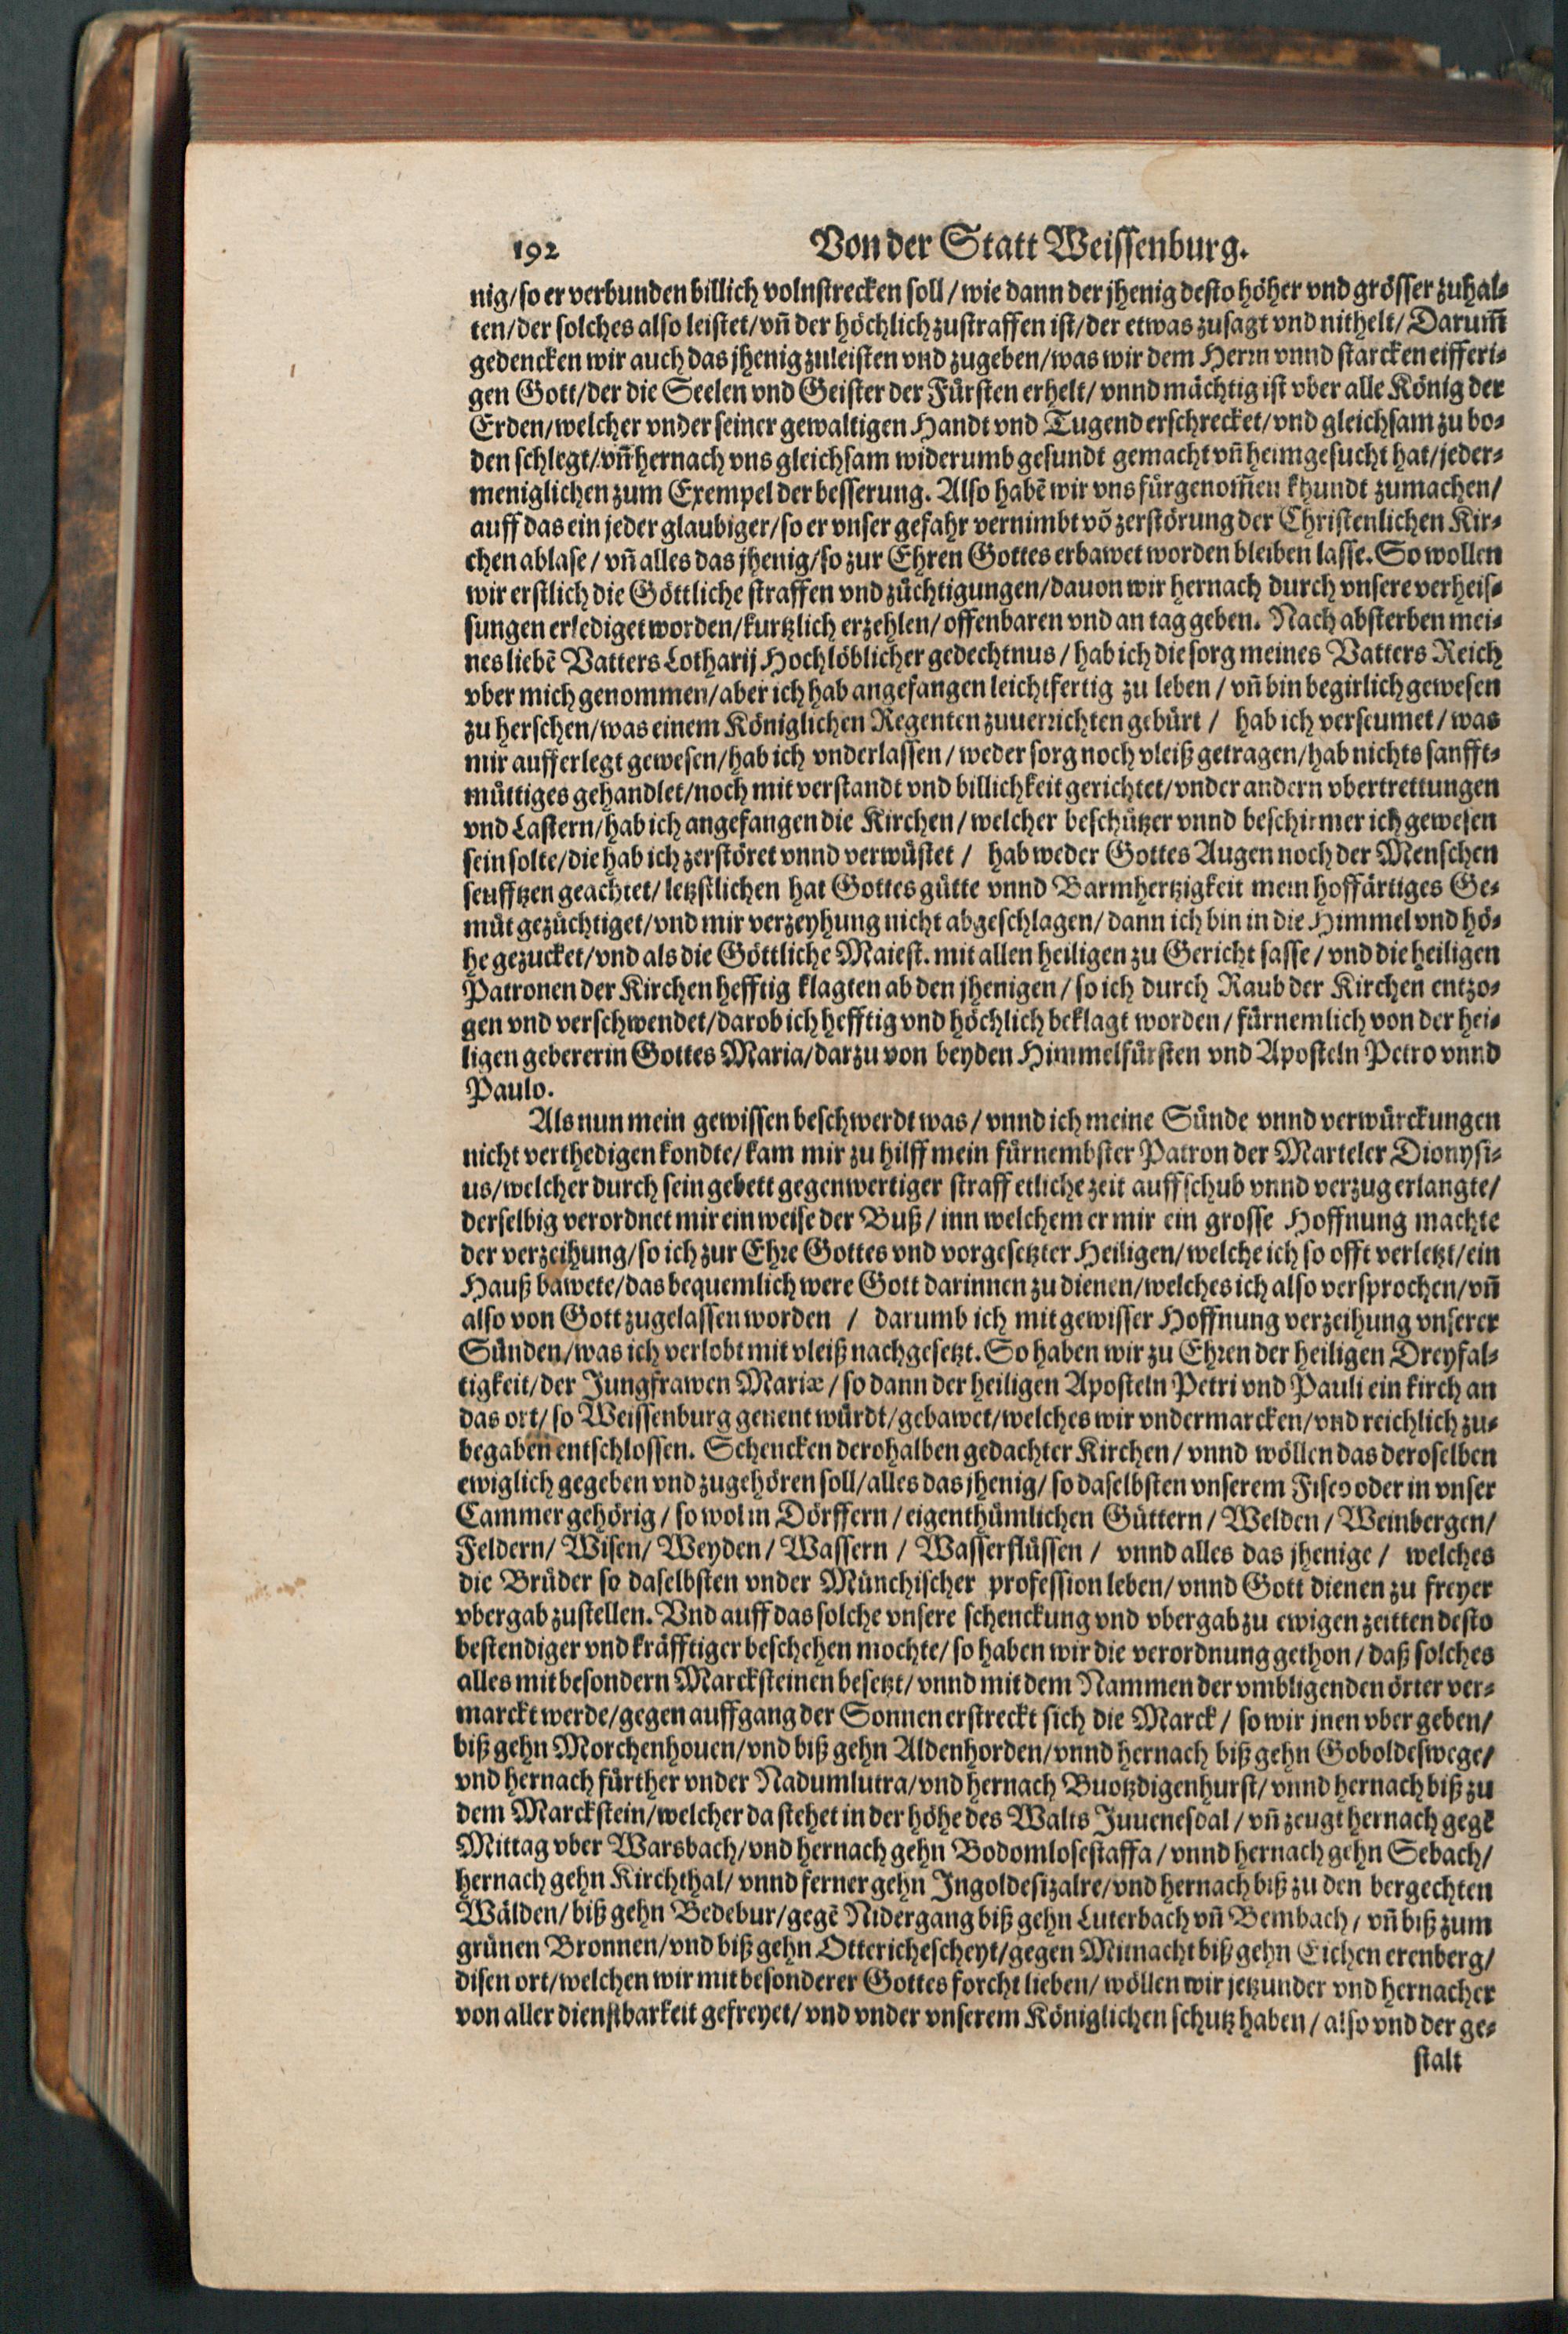 192 Von der Statt Weissenburg.
nig/so er verbunden billich volnstrecken soll/wie dann der jhenig desto höher vnd grösser zuhal-
ten/der solches also leistet/vñ der höchlich zustraffen ist/der etwas zusagt vnd nithelt/Darum̃
gedencken wir auch das jhenig zuleisten vnd zugeben/was wir dem Herrn vnnd starcken eifferi-
gen Gott/der die Seelen vnd Geister der Fürsten erhelt/vnnd mächtig ist vber alle König der
Erden/welcher vnder seiner gewaltigen Handt vnd Tugend erschrecket/vnd gleichsam zu bo-
den schlegt/vñ hernach vns gleichsam widerumb gesundt gemacht vñ heimgesucht hat/jeder-
meniglichen zum Exempel der besserung. Also habẽ wir vns fürgenom̃en khundt zumachen/
auff das ein jeder glaubiger/so er vnser gefahr vernimbt võ zerstörung der Christenlichen Kir-
chen ablase/vñ alles das jhenig/so zur Ehren Gottes erbawet worden bleiben lasse. So wollen
wir erstlich die Göttliche straffen vnd züchtigungen/dauon wir hernach durch vnsere verheis-
sungen erlediget worden/kurtzlich erzehlen/offenbaren vnd an tag geben. Nach absterben mei-
nes liebẽ Vatters Lotharij Hochlöblicher gedechtnus/hab ich die sorg meines Vatters Reich
vber mich genommen/aber ich hab angefangen leichtfertig zu leben/vñ bin begirlich gewesen
zu herschen/was einem Königlichen Regenten zuuerrichten gebürt/ hab ich verseumet/was
mir aufferlegt gewesen/hab ich vnderlassen/weder sorg noch vleiß getragen/hab nichts sanfft-
müttiges gehandlet/noch mit verstandt vnd billichkeit gerichtet/vnder andern vbertrettungen
vnd Lastern/hab ich angefangen die Kirchen/welcher beschützer vnnd beschirmer ich gewesen
sein solte/die hab ich zerstöret vnnd verwüstet/ hab weder Gottes Augen noch der Menschen
seufftzen geachtet/letzstlichen hat Gottes gütte vnnd Barmhertzigkeit mein hoffärtiges Ge-
müt gezüchtiget/vnd mir verzeyhung nicht abgeschlagen/dann ich bin in die Himmel vnd hö-
he gezucket/vnd als die Göttliche Maiest. mit allen heiligen zu Gericht sasse/vnd die heiligen
Patronen der Kirchen hefftig klagten ab den jhenigen/so ich durch Raub der Kirchen entzo-
gen vnd verschwendet/darob ich hefftig vnd höchlich beklagt worden/fürnemlich von der hei-
ligen gebererin Gottes Maria/darzu von beyden Himmelfürsten vnd Aposteln Petro vnnd
Paulo.
Als nun mein gewissen beschwerdt was/vnnd ich meine Sünde vnnd verwürckungen
nicht verthedigen kondte/kam mir zu hilff mein fürnembster Patron der Marteler Dionysi-
us/welcher durch sein gebett gegenwertiger straff etliche zeit auffschub vnnd verzug erlangte/
derselbig verordnet mir ein weise der Buß/inn welchem er mir ein grosse Hoffnung machte
der verzeihung/so ich zur Ehre Gottes vnd vorgesetzter Heiligen/welche ich so offt verletzt/ein
Hauß bawete/das bequemlich were Gott darinnen zu dienen/welches ich also versprochen/vñ
also von Gott zugelassen worden / darumb ich mit gewisser Hoffnung verzeihung vnserer
Sünden/was ich verlobt mit vleiß nachgesetzt. So haben wir zu Ehren der heiligen Dreyfal-
tigkeit/der Jungfrawen Mariæ/so dann der heiligen Aposteln Petri vnd Pauli ein kirch an
das ort/so Weissenburg genent würdt/gebawet/welches wir vndermarcken/vnd reichlich zu-
begaben entschlossen. Schencken derohalben gedachter Kirchen/vnnd wöllen das deroselben
ewiglich gegeben vnd zugehören soll/alles das jhenig/so daselbsten vnserem Fisco oder in vnser
Cammer gehörig/so wol in Dörffern/eigenthümlichen Güttern/Welden/Weinbergen/
Feldern/Wisen/Weyden/Wassern/Wasserflüssen/ vnnd alles das jhenige/ welches
die Brüder so daselbsten vnder Münchischer profession leben/vnnd Gott dienen zu freyer
vbergab zustellen. Vnd auff das solche vnsere schenckung vnd vbergab zu ewigen zeitten desto
bestendiger vnd kräfftiger beschehen mochte/so haben wir die verordnung gethon/daß solches
alles mit besondern Marcksteinen besetzt/vnnd mit dem Nammen der vmbligenden örter ver-
marckt werde/gegen auffgang der Sonnen erstreckt sich die Marck/so wir jnen vber geben/
biß gehn Morchenhouen/vnd biß gehn Aldenhorden/vnnd hernach biß gehn Goboldeswege/
vnd hernach fürther vnder Nadumlutra/vnd hernach Buotzdigenhurst/vnnd hernach biß zu
dem Marckstein/welcher da stehet in der höhe des Walts Juuenesdal/vñ zeugt hernach gegẽ
Mittag vber Warsbach/vnd hernach gehn Bodomlosestaffa/vnnd hernach gehn Sebach/
hernach gehn Kirchthal/vnnd ferner gehn Ingoldesizalre/vnd hernach biß zu den bergechten
Wälden/biß gehn Bedebur/gegẽ Nidergang biß gehn Luterbach vñ Bembach/vñ biß zum
grünen Bronnen/vnd biß gehn Otterichescheyt/gegen Mitnacht biß gehn Eichen erenberg/
disen ort/welchen wir mit besonderer Gottes forcht lieben/wöllen wir jetzunder vnd hernacher
von aller dienstbarkeit gefreyet/vnd vnder vnserem Königlichen schutz haben/also vnd der ge-
stalt